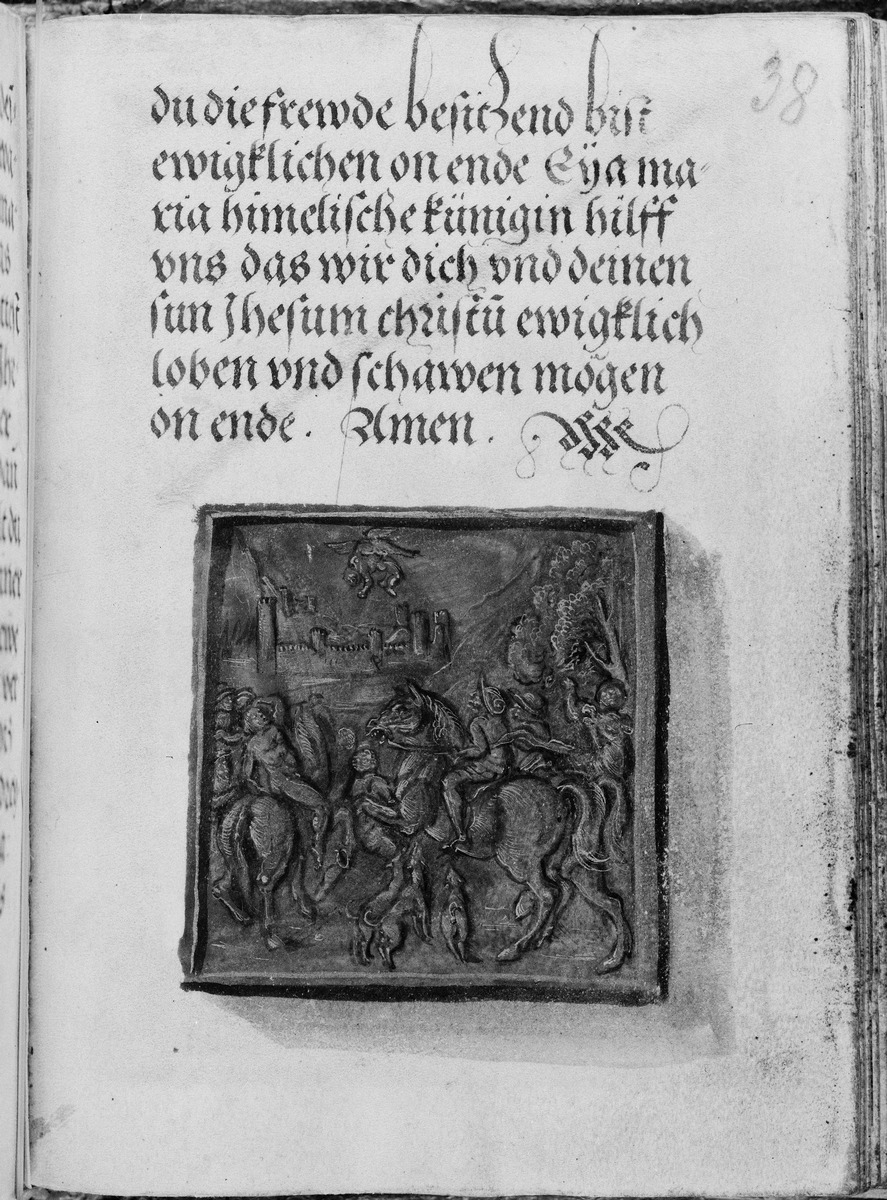 38
du die frewde besitzend bist
ewigklichen on ende Eya ma-
ria himelische künigin hilff
vns das wir dich vnd deinen
sun Jhesum christū ewigklich
loben vnd schawen mögen
on ende. Amen.